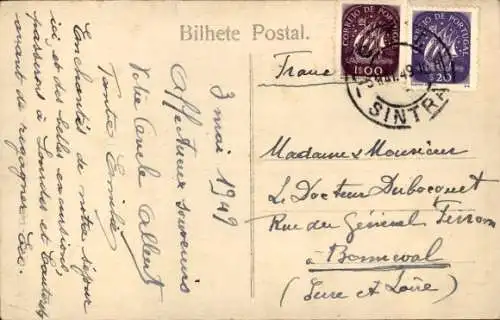 Bilhete Postal.
CORREIO DE PORTUGAL
1$00
CORREIO DE PORTUGAL
$20
SINTRA
49
3 mai 1949
Affectueux souvenirs
Votre oncle Albert
Tante Emilie
Enchantés de notre séjour
ici et des belles excursions,
passerons à Londres et
avant de regagner
France
Madame & Monsieur
Le Docteur Dubocquet
Rue du Général
à Bonneval
(Eure et Loire)